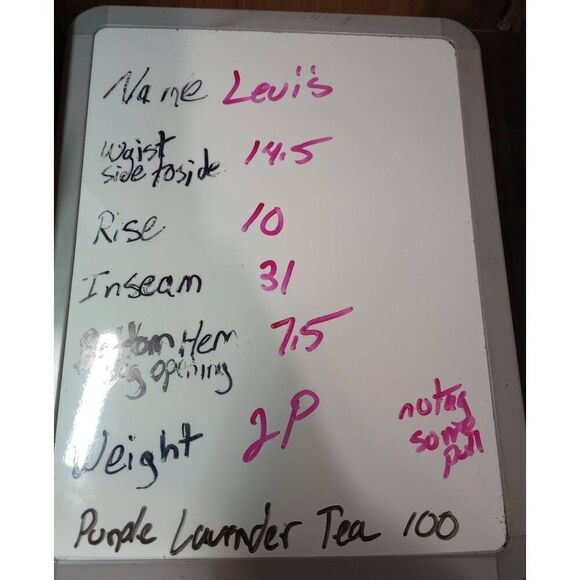 Name Levi's
Waist 14.5
side to side
Rise 10
Inseam 31
Bottom Hem 7.5
Leg opening
Weight 2P
no tag
some
pull
Purple Lavender Tea 100